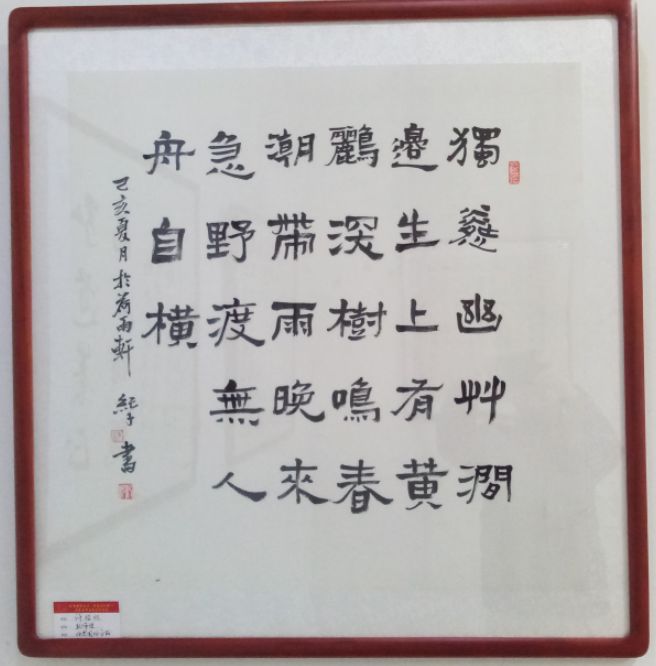 獨憐幽艸澗
邊生上有黃
鸝深樹鳴春
潮帶雨晚來
急野渡無人
舟自橫
己亥夏月於荷雨軒
書